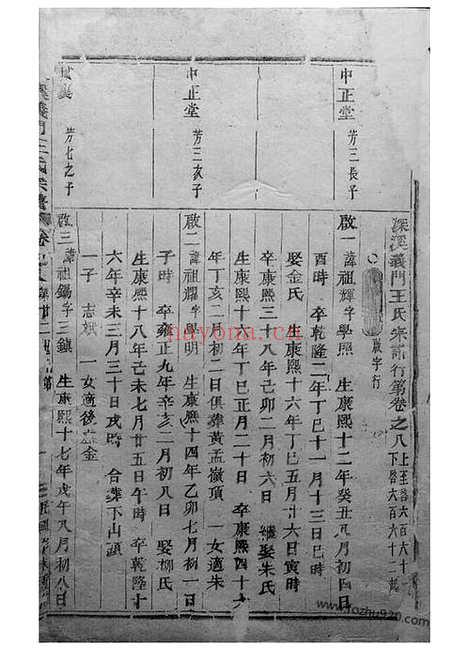 深溪義門王氏宗譜行第卷之八
啟字行
中正堂 芳三長子
啟一 諱祖輝字學照 生康熙十二年癸丑八月初四日
酉時 卒乾隆二年丁巳十一月十三日巳時
娶金氏 生康熙十六年丁巳五月廿六日寅時
卒康熙三十八年己卯二月初六日 繼娶朱氏
生康熙十六年丁巳正月二十日 卒康熙四十六
年丁亥二月初二日俱葬黃孟嶺頂 一女適朱
中正堂 芳三次子
啟二 諱祖耀字學明 生康熙十四年乙卯七月初一日
子時 卒雍正九年辛亥二月初八日 娶柳氏
生康熙十八年己未七月廿五日午時 卒乾隆十
六年辛未三月三十日戌時 合葬下山頭
一子 志斌 一女適後金
芳七之子
啟三 諱祖錫字三鎮 生康熙十七年戊午八月初八日
nayona.cn
www.fozhu920.com